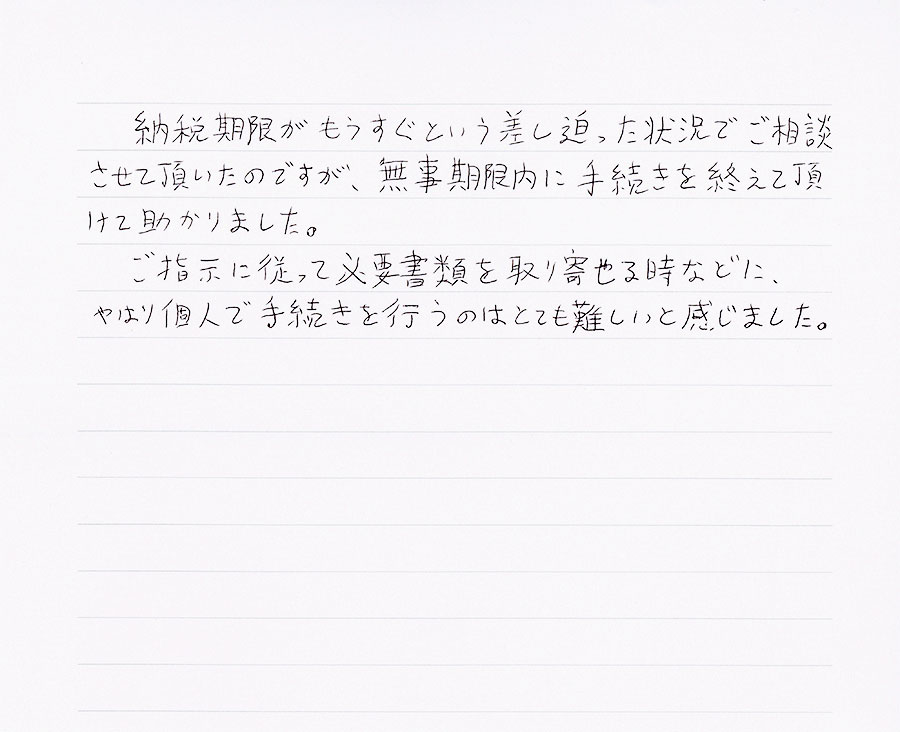 納税期限がもうすぐという差し迫った状況でご相談
させて頂いたのですが、無事期限内に手続きを終えて頂
けて助かりました。
ご指示に従って必要書類を取り寄せる時などに、
やはり個人で手続きを行うのはとても難しいと感じました。